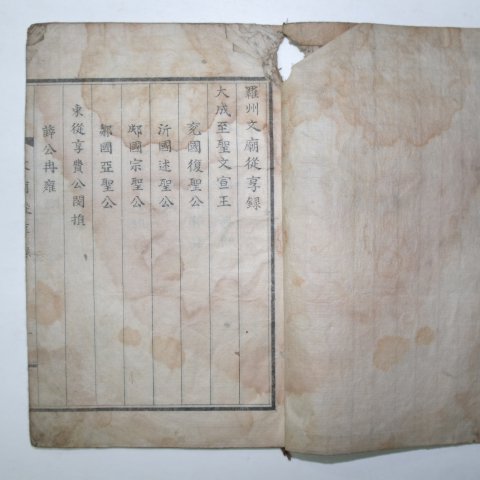 羅州文廟從享録
大成至聖文宣王
兗國復聖公
沂國述聖公
郕國宗聖公
鄒國亞聖公
東從享費公閔損
薛公冉雍
文廟從享録